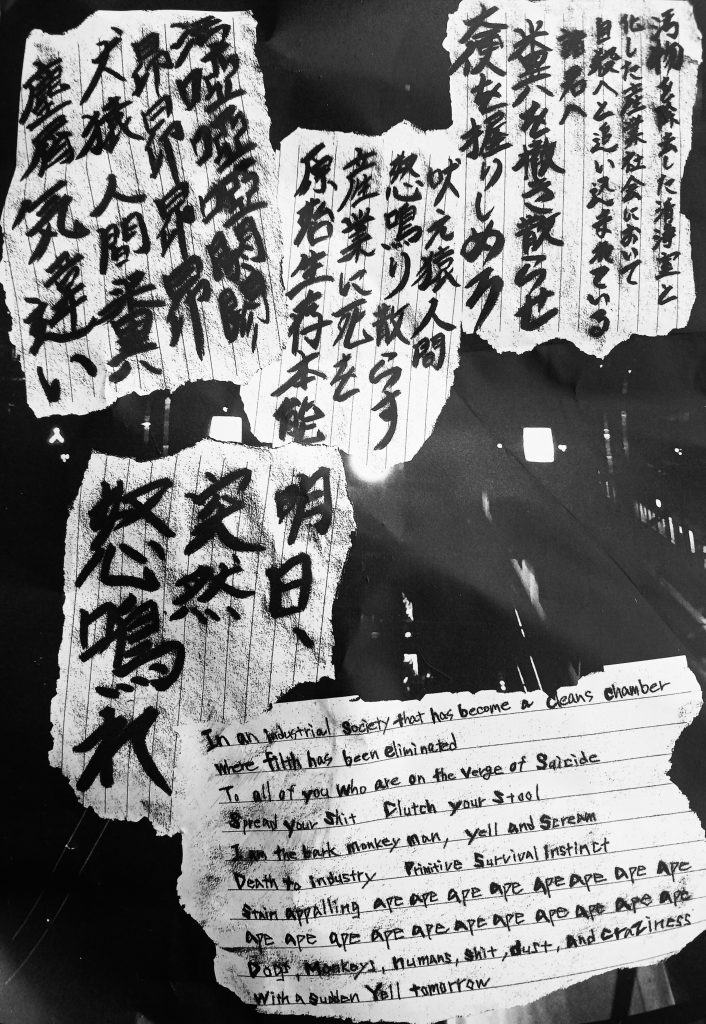 汚物を除去した清浄室と
化した産業社会において
自殺へと追い込まれている
諸君へ
糞を撒き散らせ
大便を握りしめろ
吠え猿人間
怒鳴り散らす
産業に死を
原始生存本能
昂昂昂昂
犬猿人間糞
塵屑気違い
明日、
突然
怒鳴れ
In an industrial society that has become a cleans chamber
where filth has been eliminated
To all of you who are on the verge of Suicide
Spread your shit Clutch your stool
I am the bark monkey man, yell and scream
Death to industry Primitive Survival instinct
Stain appalling ape ape ape ape ape ape ape ape
ape ape ape ape ape ape ape ape ape ape
Dogs, Monkeys, humans, shit, dust, and craziness
With a sudden Yell tomorrow